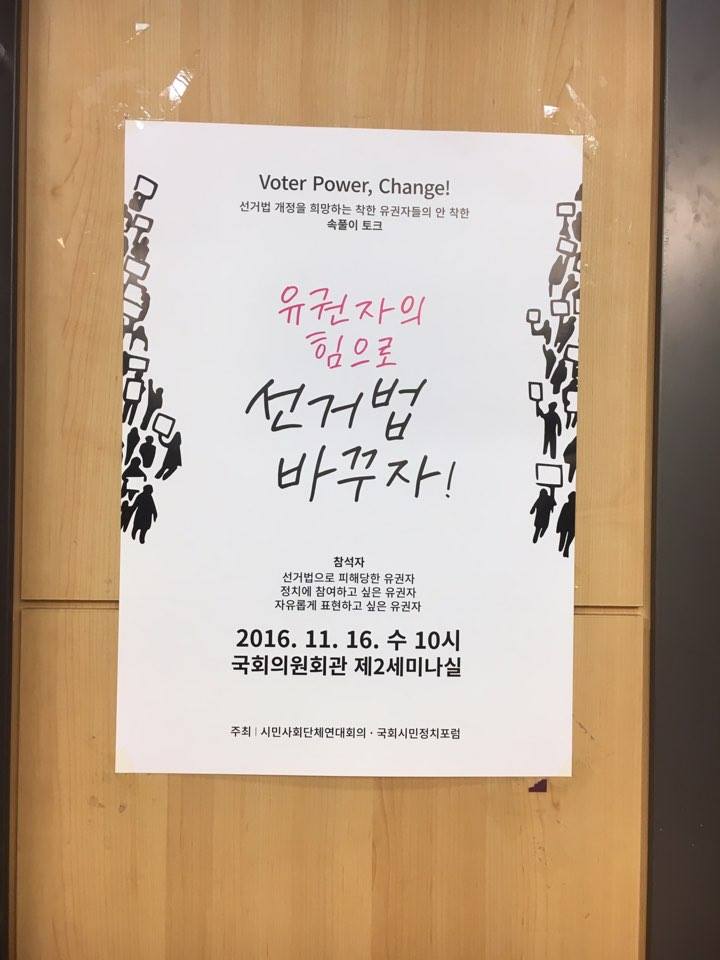 Voter Power, Change!
선거법 개정을 희망하는 착한 유권자들의 안 착한
속풀이 토크
유권자의
힘으로
선거법
바꾸자!
참석자
선거법으로 피해당한 유권자
정치에 참여하고 싶은 유권자
자유롭게 표현하고 싶은 유권자
2016. 11. 16. 수 10시
국회의원회관 제2세미나실
주최 | 시민사회단체연대회의 · 국회시민정치포럼